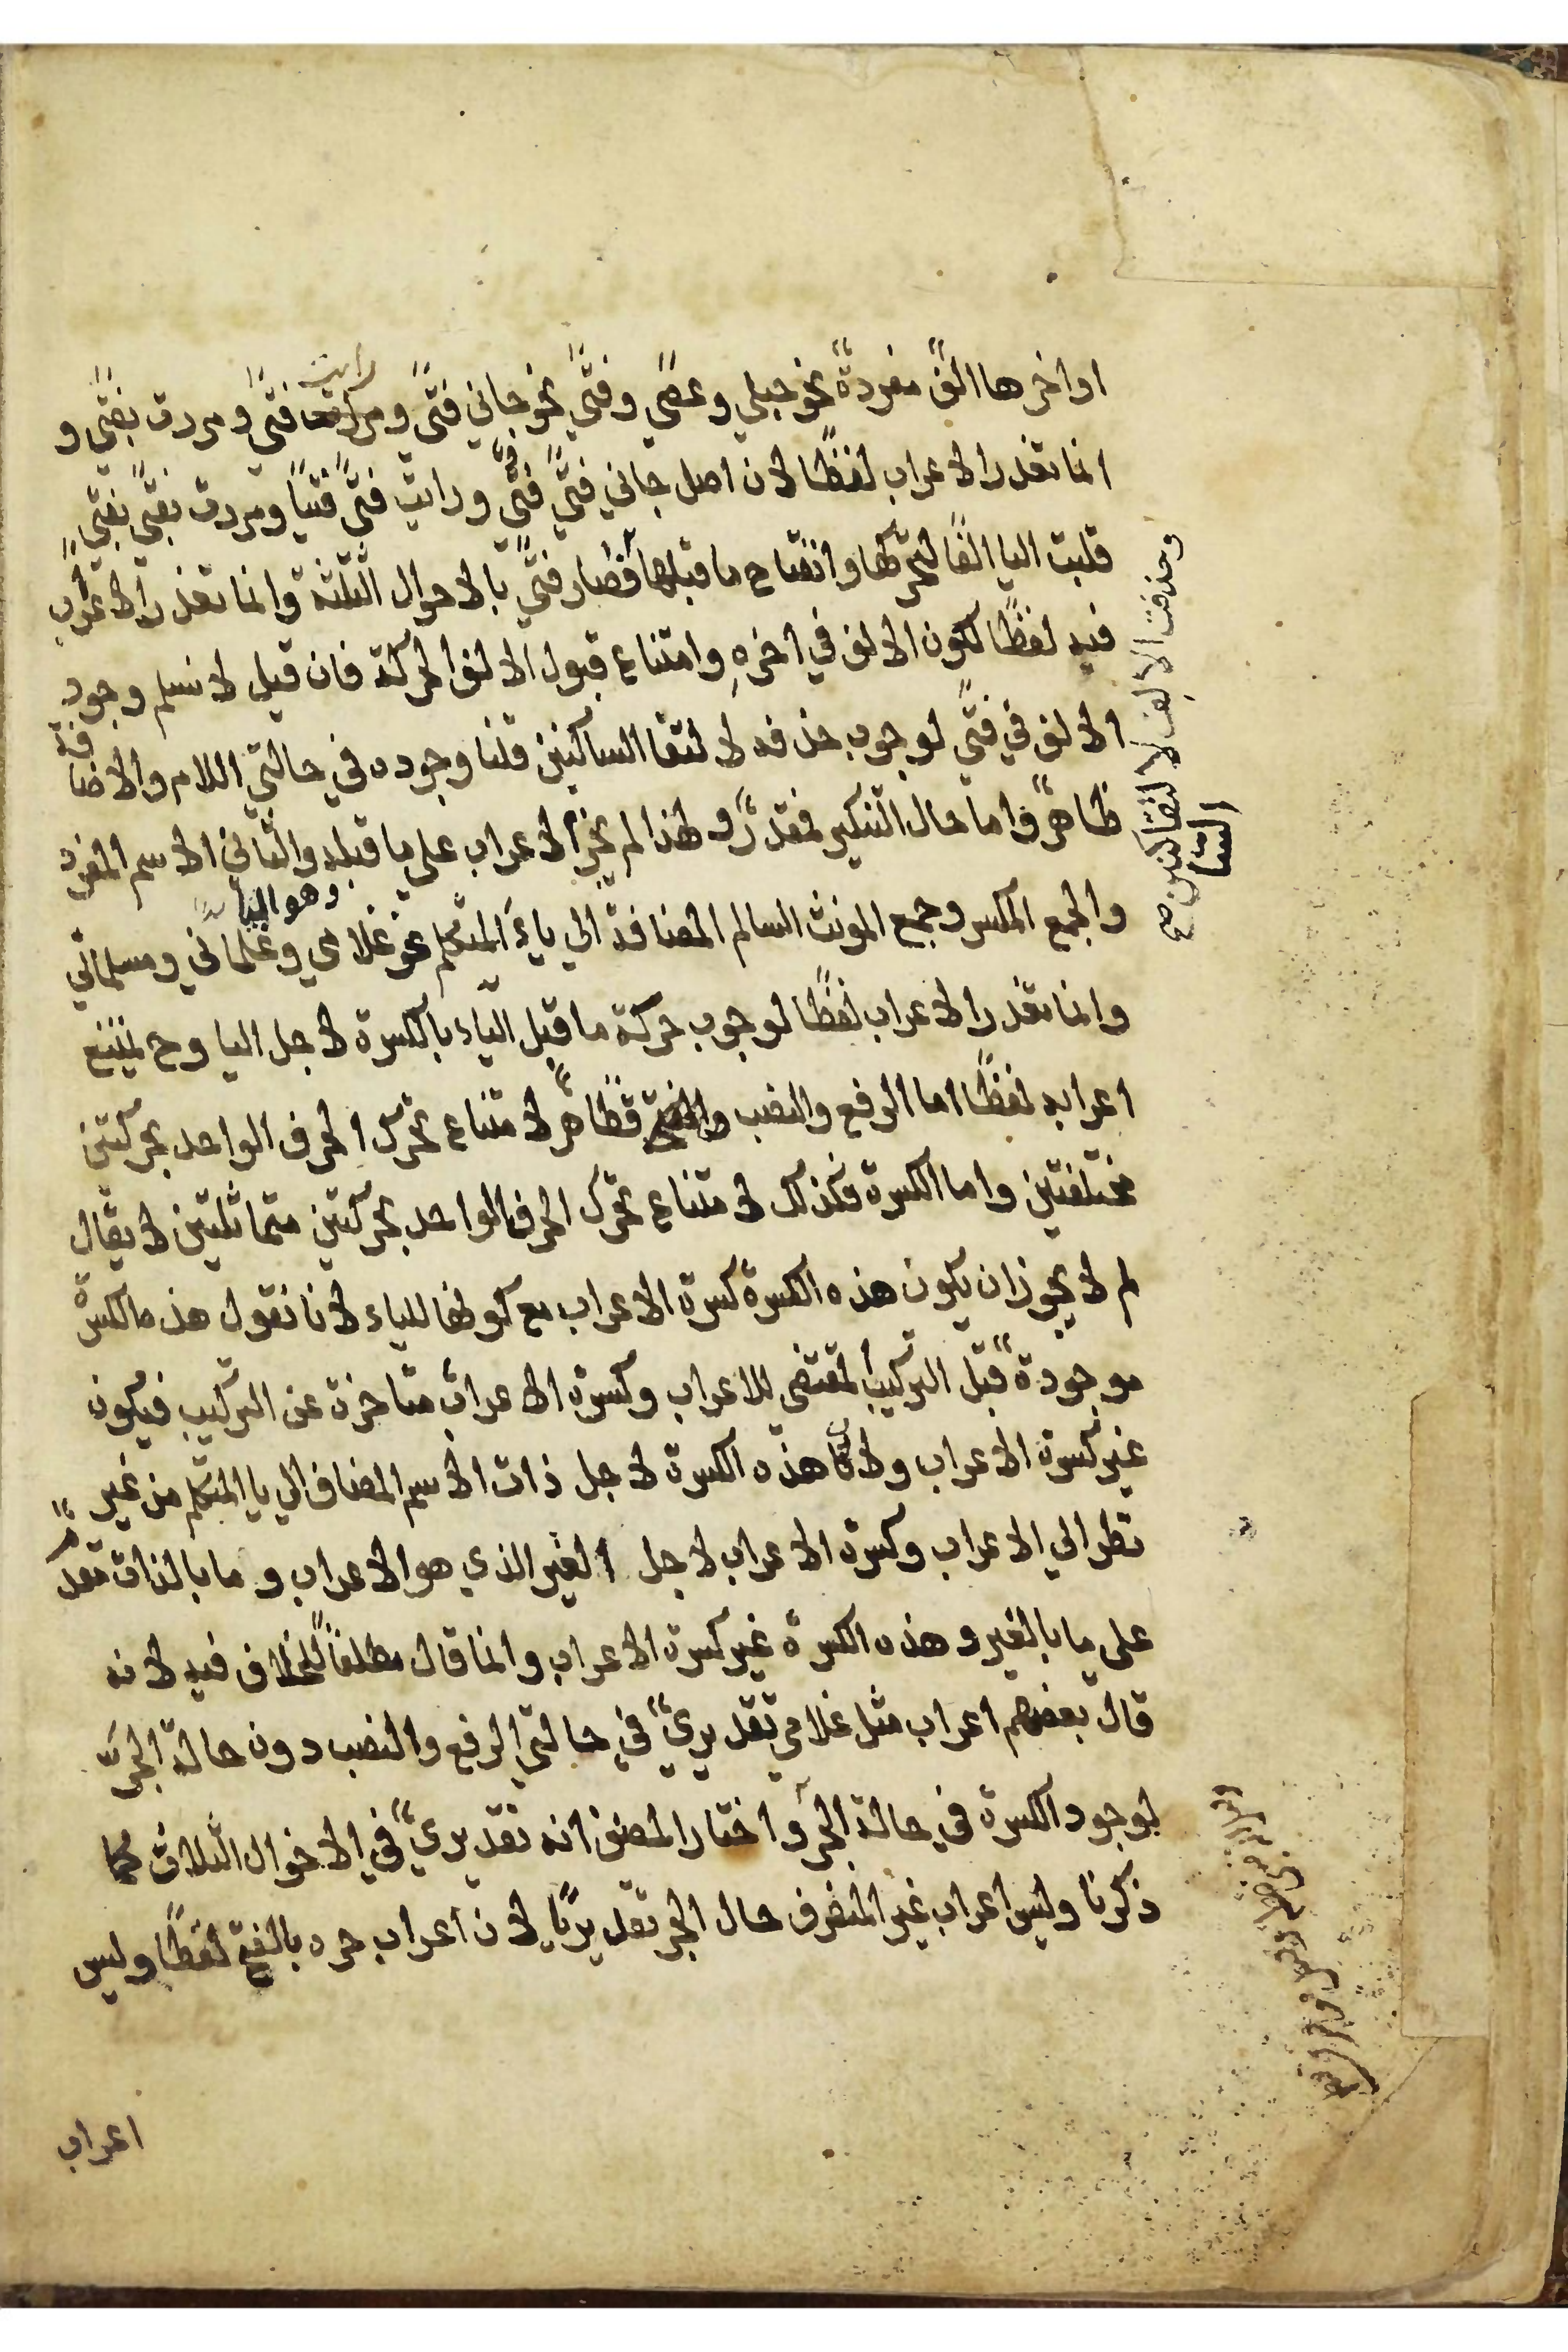 اواخرها الفٌ مفردةٌ نحو حبلي وعصًي وفتًي نحو جاني فتًي ورايت فتًي ومررت بفتًي و
انما تعذر الاعراب لفظًا لان اصل جاني فتًي فتيٌ ورايت فتًي فتيًا ومررت بفتًي بفتيٍ
قلبت اليا الفًا لتحركها وانفتاح ما قبلها فصار فتًي بالاحوال الثلثة وانما تعذر الاعراب
فيه لفظًا لكون الالف في اخرهِ وامتناع قبول الالف الحركة فان قيل لا نسلم وجود
الالف في فتًي لوجوب حذفه لالتقا الساكنين قلنا وجوده في حالتي اللام والاضافة
ظاهرٌ واما حال التنكير فمقدرٌ ولهذا لم يجز الاعراب علي ما قبله والثاني الاسم المفرد
والجمع المكسر وجمع المونث السالم المضافة الي ياءِ المتكلم نحو غلامي وغلماني ومسلماتي
وهو اليا
وانما تعذر الاعراب لفظًا لوجوب حركة ما قبل الياء بالكسرة لاجل اليا وح يمتنع
اعرابه لفظًا اما الرفع والنصب فظاهرٌ لامتناع تحرك الحرف الواحد بحركتين
مختلفتين واما الكسرة فكذلك لامتناع تحرك الحرف الواحد بحركتين متماثلتين لا يقال
لم لا يجوز ان يكون هذه الكسرة كسرة الاعراب مع كونها للياء لانا نقول هذه الكسرة
موجودةٌ قبل التركيب المقتضي للاعراب وكسرة الاعراب متاخرة عن التركيب فيكون
غير كسرة الاعراب ولان هذه الكسرة لاجل ذات الاسم المضاف الي يا المتكلم من غير
نظر الي الاعراب وكسرة الاعراب لاجل الغير الذي هو الاعراب وما بالذات مقدمٌ
علي ما بالغير وهذه الكسرة غير كسرة الاعراب وانما قال مطلقًا للخلاف فيه لانه
قال بعضهم اعراب مثل غلامي تقديريٌ في حالتي الرفع والنصب دون حالة الجر
لوجود الكسرة في حالة الجر واختار المصنف انه تقديريٌ في الاحوال الثلاث كما
ذكرنا وليس اعراب غير المنصرف حال الجر تقديريًا لان اعراب جره بالفتح لفظًا وليس
وحذفت الالف لالتقا الساكنين صح
اعراب